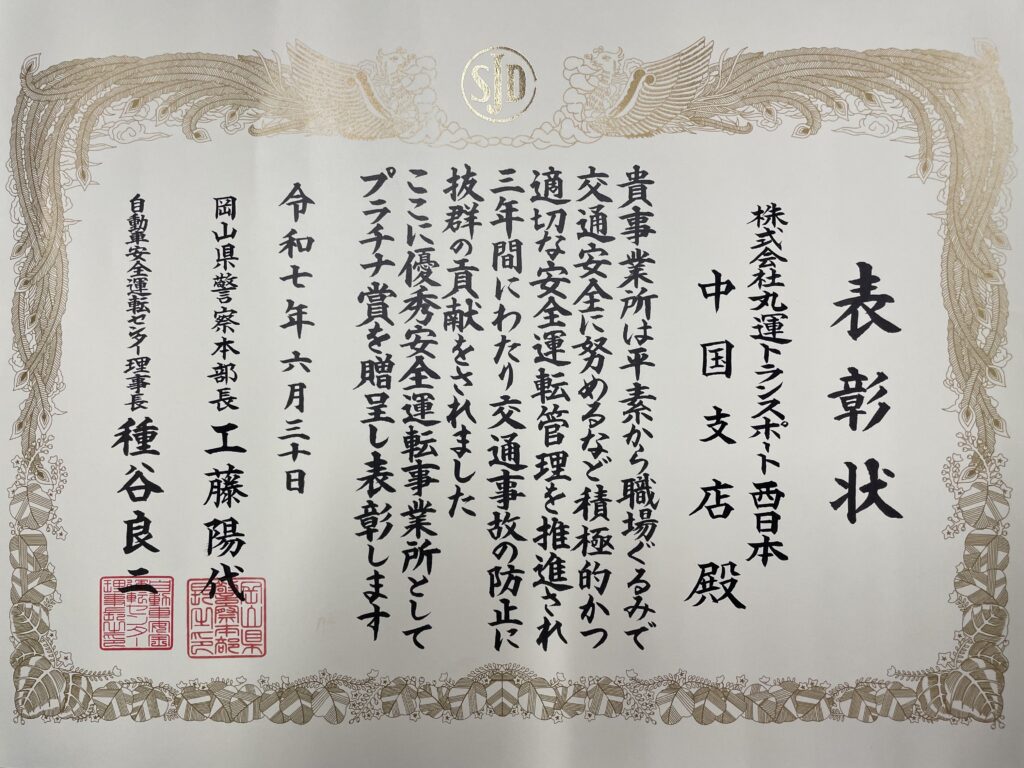 SJD
表彰状
株式会社丸運トランスポート西日本
中国支店殿
貴事業所は平素から職場ぐるみで
交通安全に努めるなど積極的かつ
適切な安全運転管理を推進され
三年間にわたり交通事故の防止に
抜群の貢献をされました
ここに優秀安全運転事業所として
プラチナ賞を贈呈し表彰します
令和七年六月三十日
岡山県警察本部長 工藤陽代
自動車安全運転センター理事長 種谷良二
岡山県
警察本部
長之印
自動車安全
運転センター
理事長之印